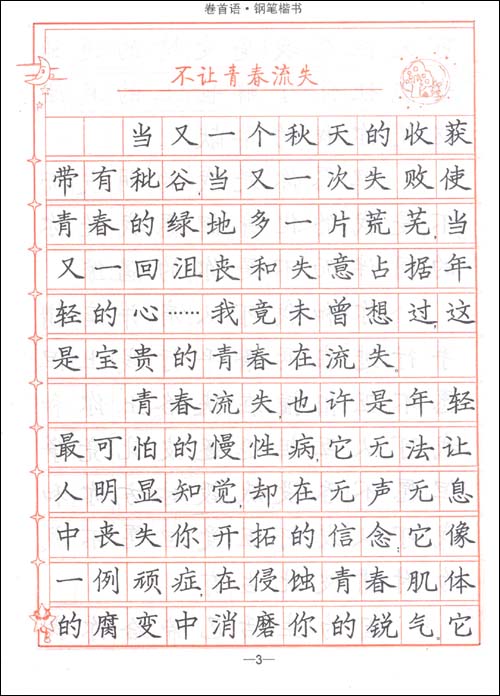 卷首语·钢笔楷书
不让青春流失
当又一个秋天的收获
带有秕谷，当又一次失败使
青春的绿地多一片荒芜，当
又一回沮丧和失意占据年
轻的心……我竟未曾想过，这
是宝贵的青春在流失。
青春流失，也许是年轻
最可怕的慢性病，它无法让
人明显知觉，却在无声无息
中丧失你开拓的信念；它像
一例顽症，在侵蚀青春肌体
的腐变中消磨你的锐气。它
—3—